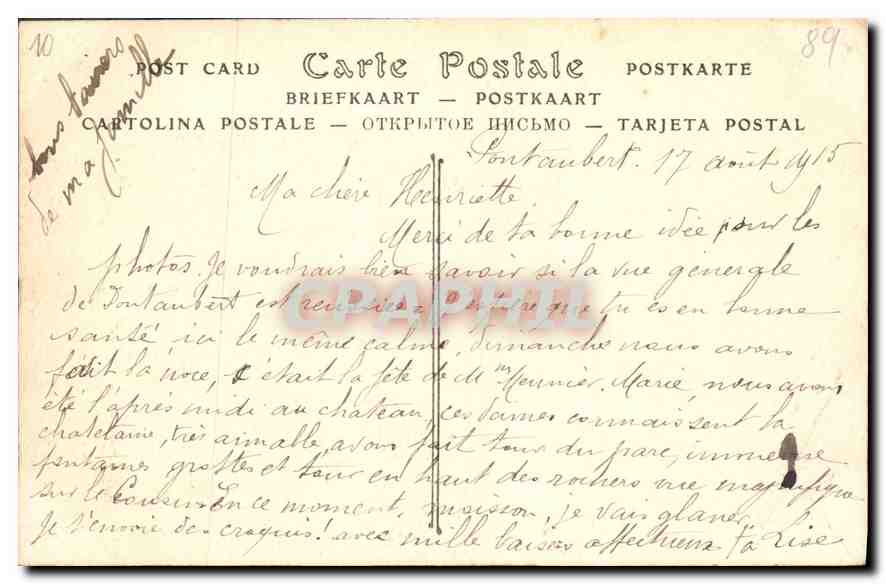 10
89
bons baisers
de ma famille
POST CARD Carte Postale POSTKARTE
BRIEFKAART — POSTKAART
CARTOLINA POSTALE — ОТКРЫТОЕ ПИСЬМО — TARJETA POSTAL
Pontaubert. 17 août 1915
Ma chère Henriette
Merci de ta bonne idée pour les
photos. Je voudrais bien savoir si la vue générale
de Pontaubert est réussie. J'espère que tu es en bonne
santé ici le même calme, dimanche nous avons
fait la noce, c'était la fête de Mme Meunier. Marie, nous avons
été l'après midi au chateau, ces dames connaissent la
chatelaine, très aimable, avons fait tour du parc, immense
fontaines grottes et tour en haut des rochers vue magnifique
sur le Cousin. En ce moment, moisson, je vais glaner
Je t'envoie des croquis! avec mille baisers affectueux ta Lise
CPAPHIL